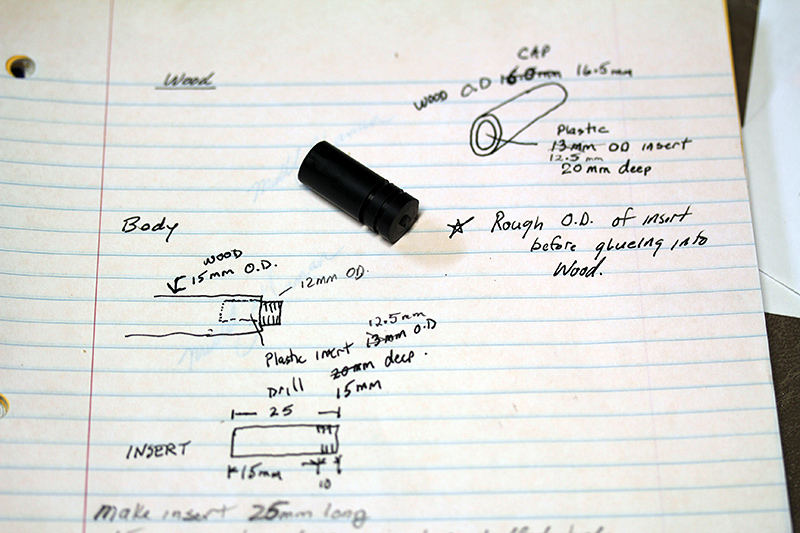 Wood
CAP
WOOD O.D 16.0mm 16.5mm
Plastic
13mm OD insert
12.5 mm
20mm deep
Body
☆ Rough O.D. of insert
before glueing into
Wood.
WOOD
15mm O.D.
12mm OD.
12.5mm
Plastic insert 13mm O.D
20mm deep.
Drill 15mm
25
INSERT
15mm
10
Make insert 25mm long